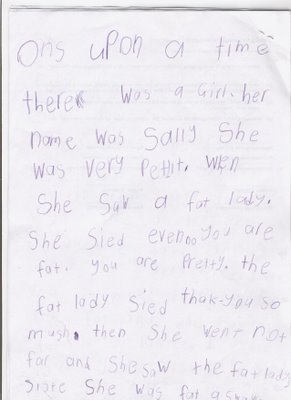 Ons upon a time
there was a Girl. her
name was Sally She
was very Pettit. when
She Saw a fat lady.
She Sied evenno you are
fat. you are Pretty. the
fat lady Sied thak-you so
mush. then She went not
far and She saw the fat lady
She was fat